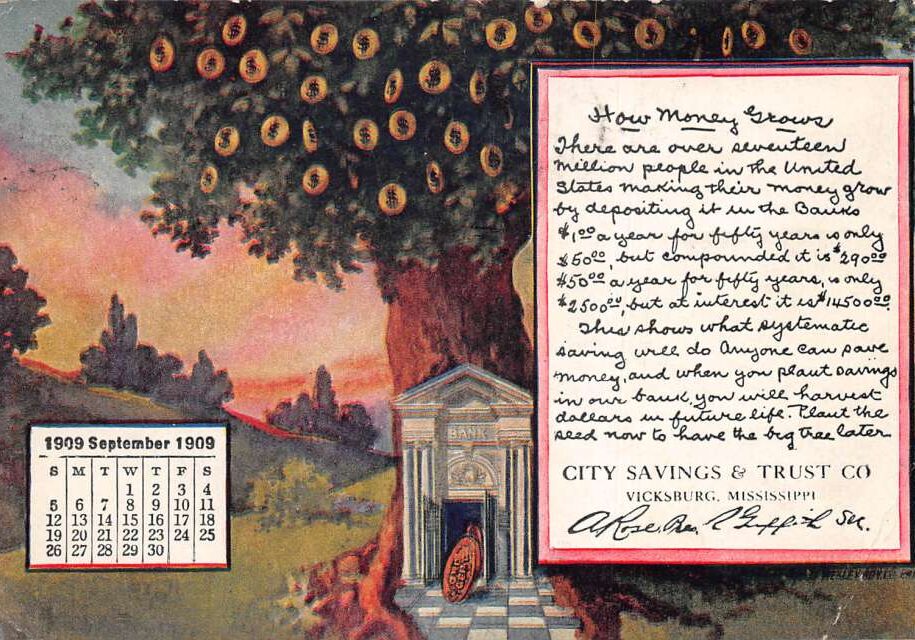 How Money Grows
There are over seventeen
million people in the United
States making their money grow
by depositing it in the Banks
$1.00 a year for fifty years is only
$50.00, but compounded it is $290.00
$50.00 a year for fifty years, is only
$2500.00, but at interest it is $14500.00.
This shows what systematic
saving will do Anyone can save
money, and when you plant savings
in our bank, you will harvest
dollars in future life. Plant the
seed now to have the big tree later
CITY SAVINGS & TRUST CO
VICKSBURG, MISSISSIPPI
A Rose, Pres. Griffith Sec.
BANK
ONE CENT
1909 September 1909
S M T W T F S
1 2 3 4
5 6 7 8 9 10 11
12 13 14 15 16 17 18
19 20 21 22 23 24 25
26 27 28 29 30